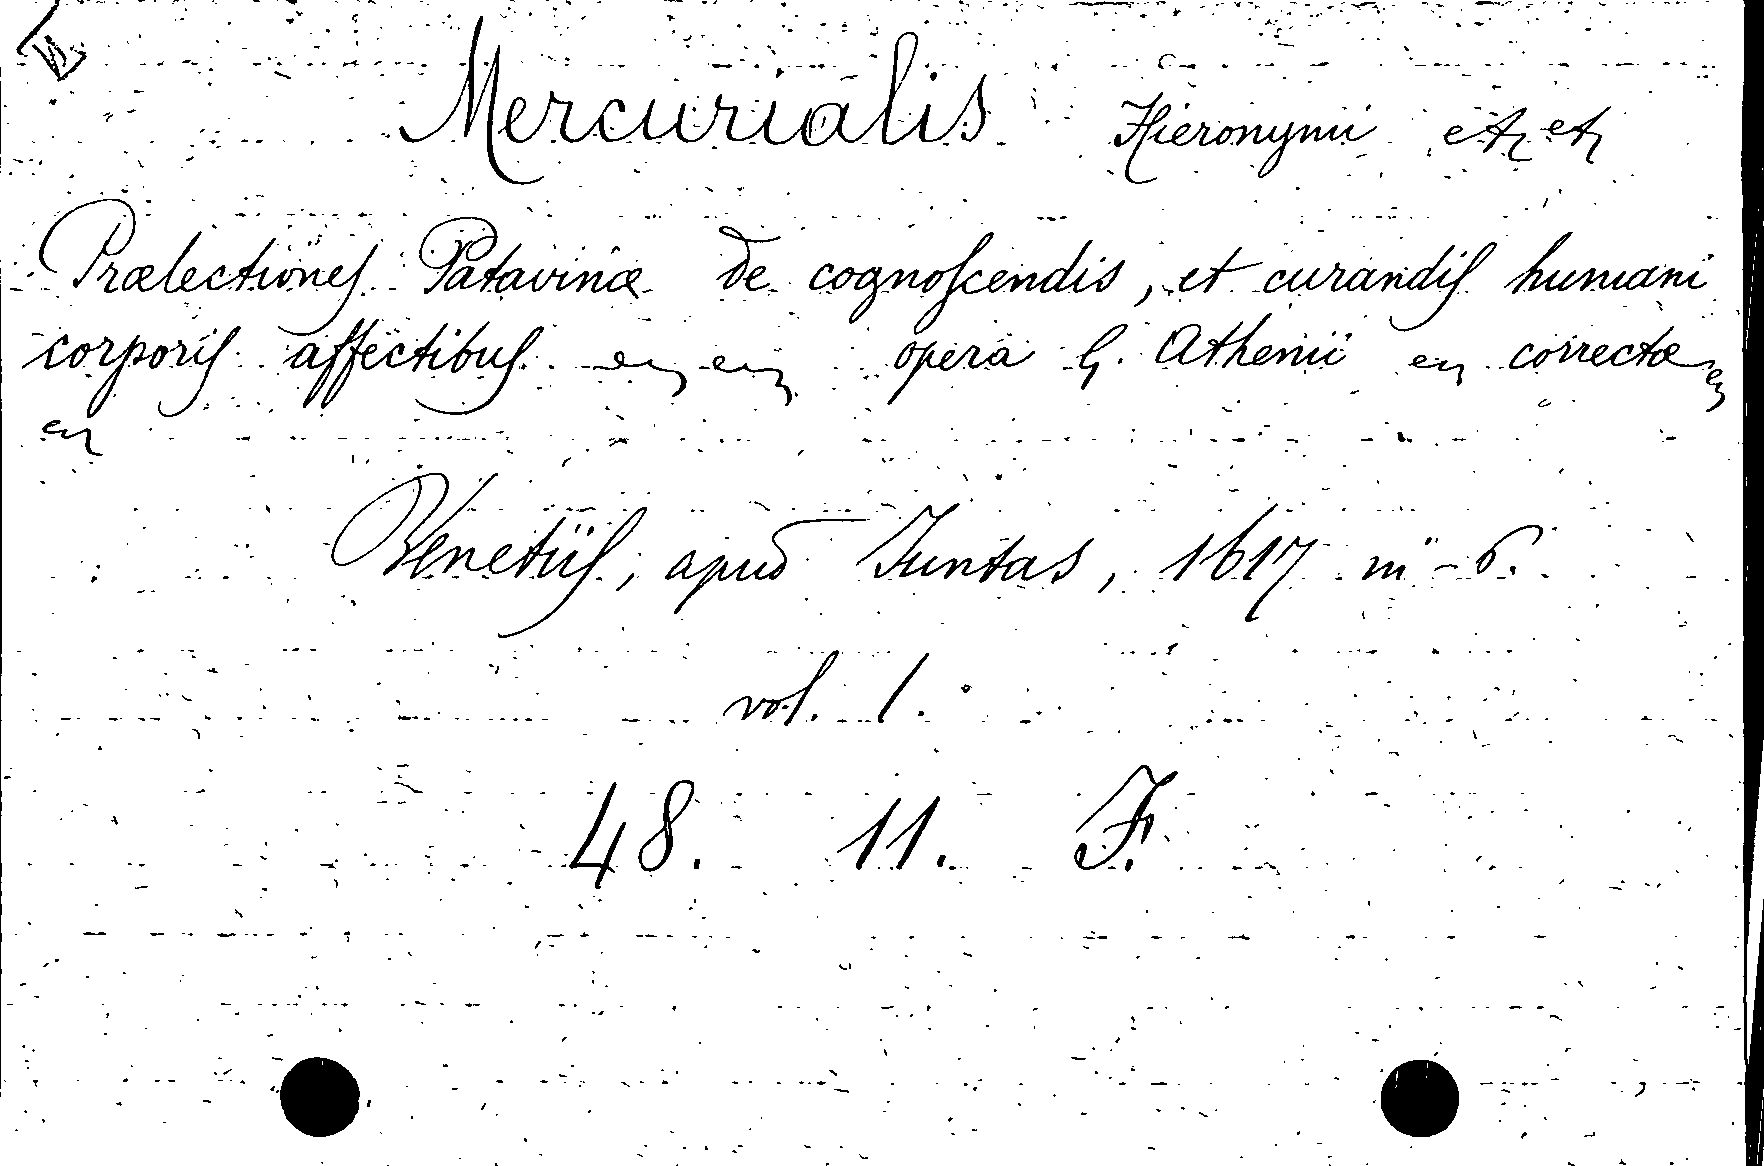 Mercurialis Hieronymi etc etc
Prælectiones Patavinæ de cognoscendis, et curandis humani
corporis affectibus etc etc opera G. Athenii etc correctæ etc
etc
Venetiis, apud Iuntas, 1617 in-6.
vol. 1.
48. 11. F.